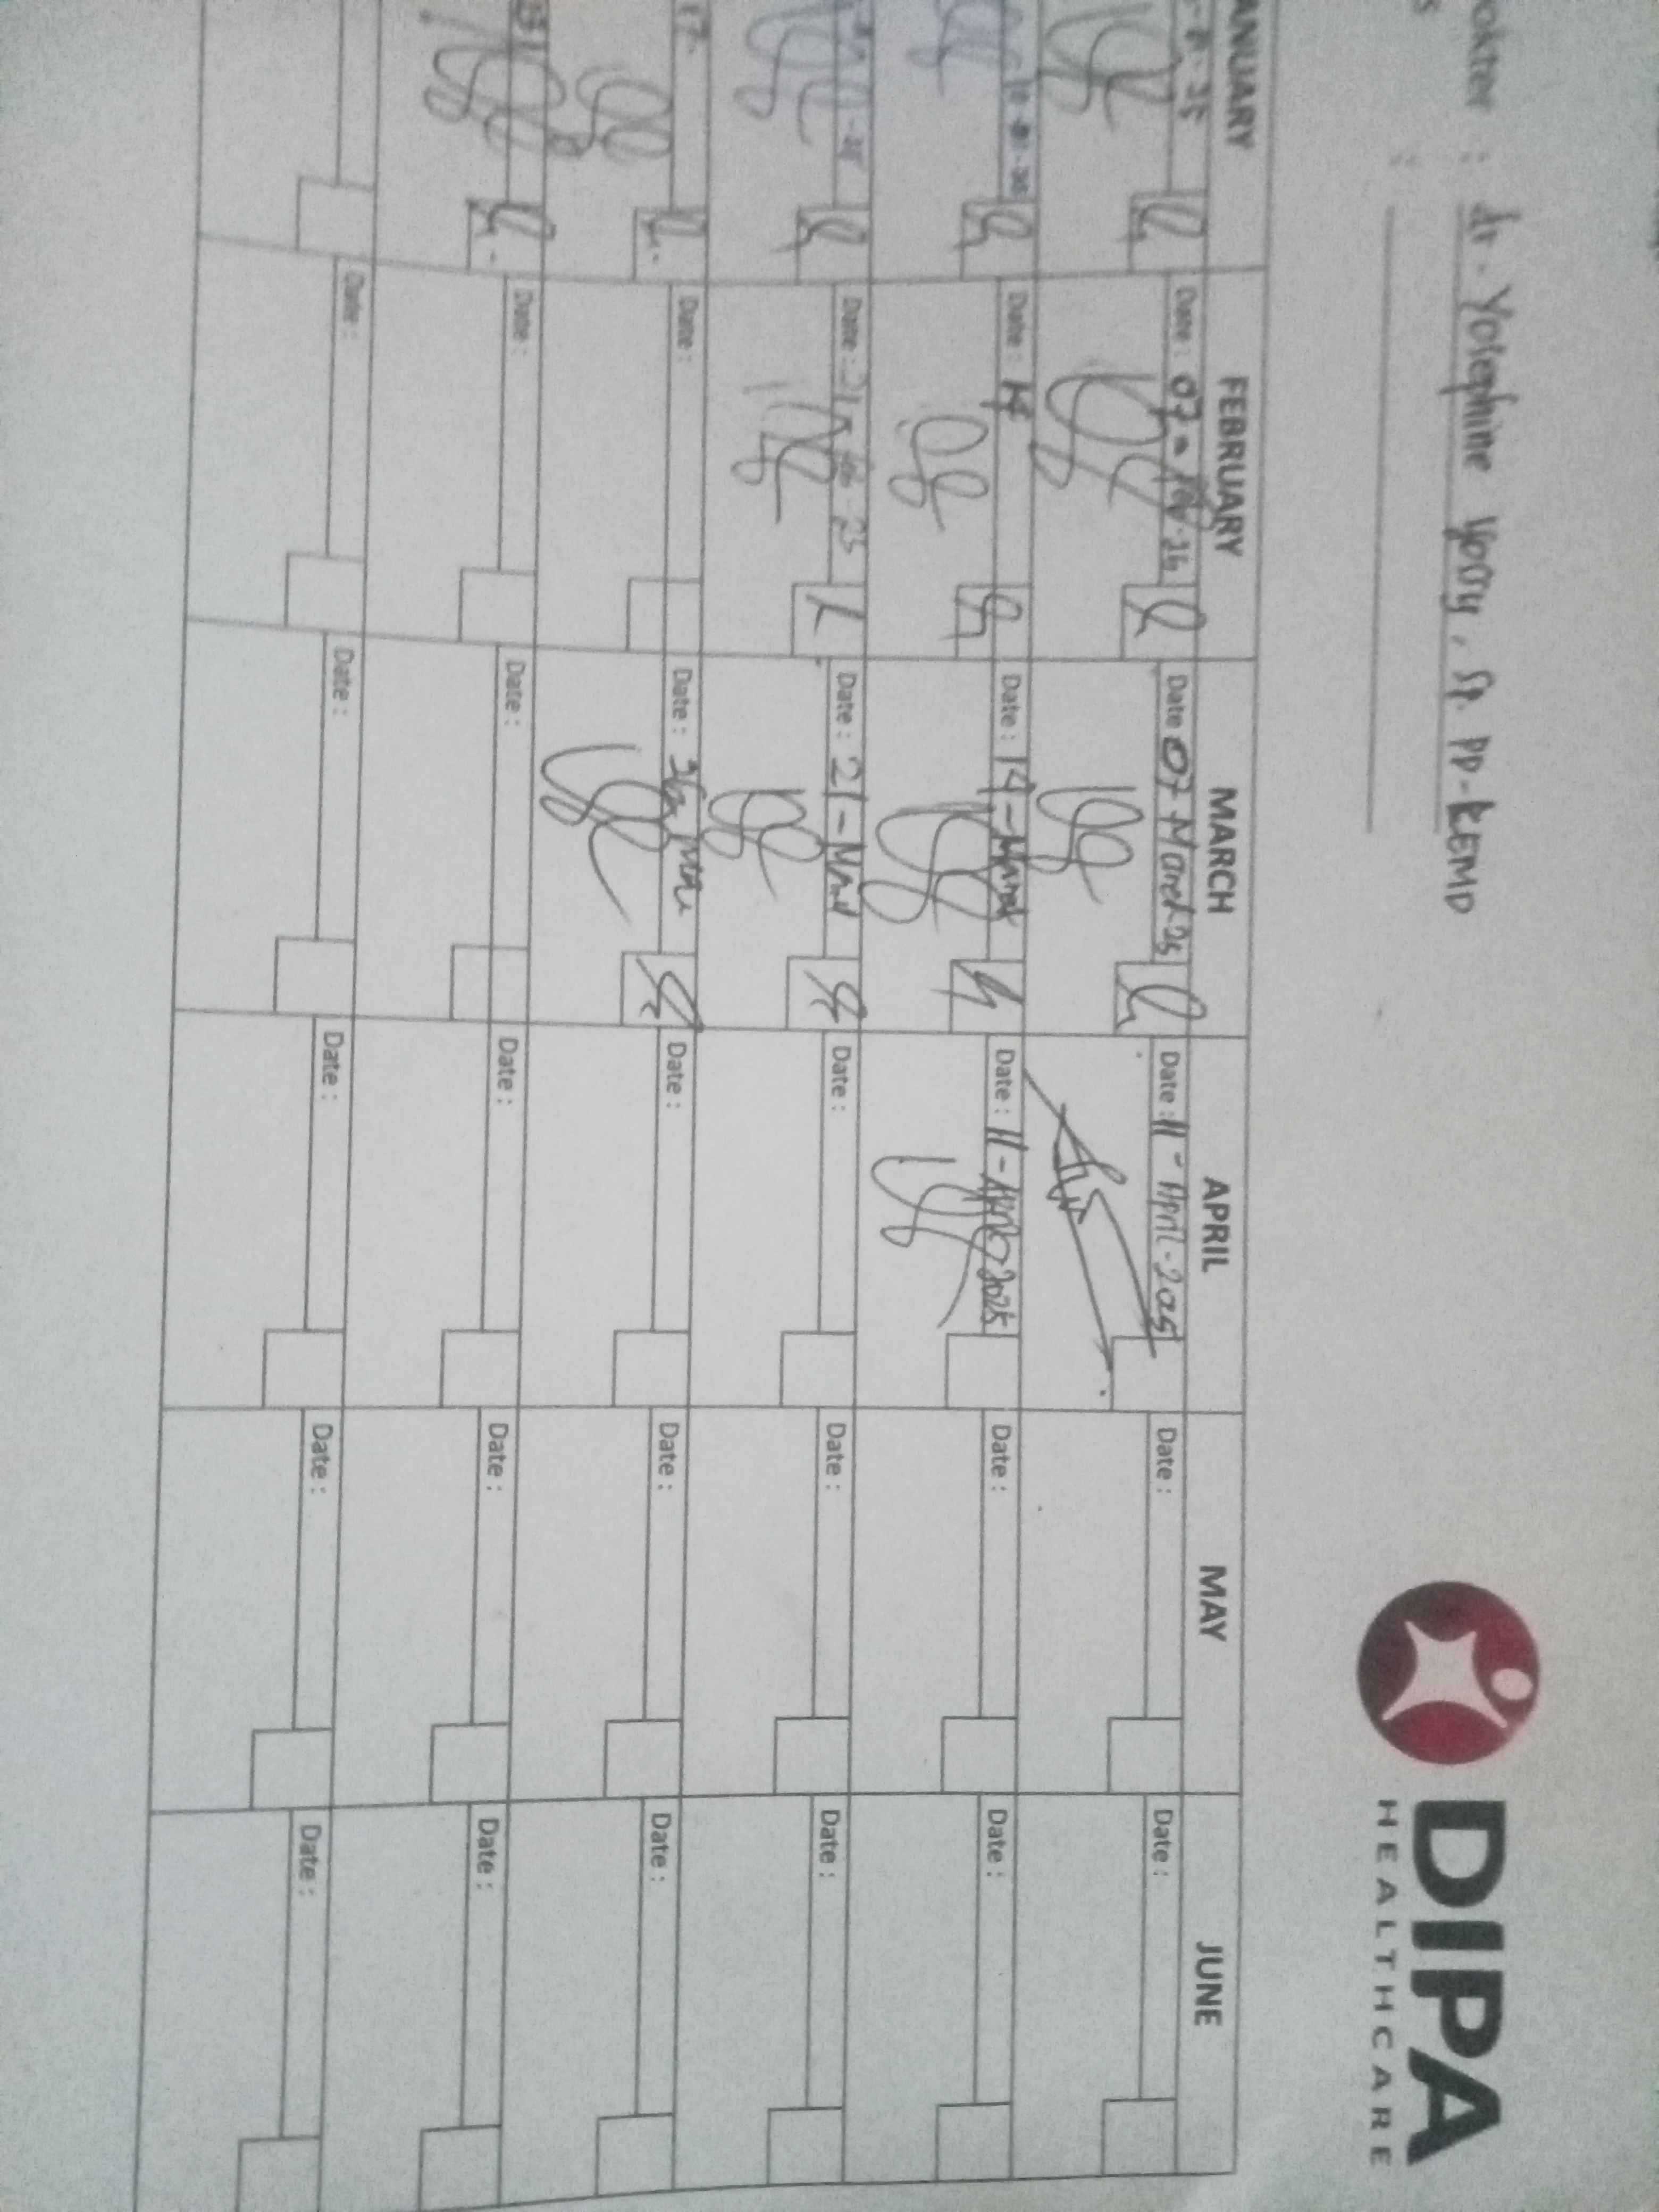 DIPA
HEALTHCARE
okter : dr. Yosephine Yossy, Sp. PD-KEMD
s :
ANUARY FEBRUARY MARCH APRIL MAY JUNE
-25 Date : 07 - Date : 07 March 25 Date : 11 - April - 2025 Date : Date :
Date : 14 Date : 14 - Maret Date : 11 - April 2025 Date : Date :
Date : 21 25 Date : 21 - Date : Date : Date :
17 Date : Date : Date : Date : Date :
31 Date : Date : Date : Date : Date :
Date : Date : Date : Date : Date :